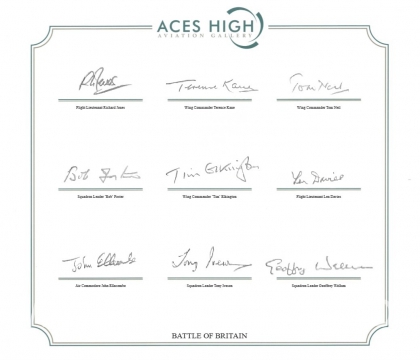 ACES HIGH
AVIATION GALLERY
R L Jones Terence Kane Tom Neil
Flight Lieutenant Richard Jones Wing Commander Terence Kane Wing Commander Tom Neil
Bob Foster Tim Elkington Len Davies
Squadron Leader 'Bob' Foster Wing Commander 'Tim' Elkington Flight Lieutenant Len Davies
John Ellacombe Tony Iveson Geoffrey Wellum
Air Commodore John Ellacombe Squadron Leader Tony Iveson Squadron Leader Geoffrey Wellum
BATTLE OF BRITAIN